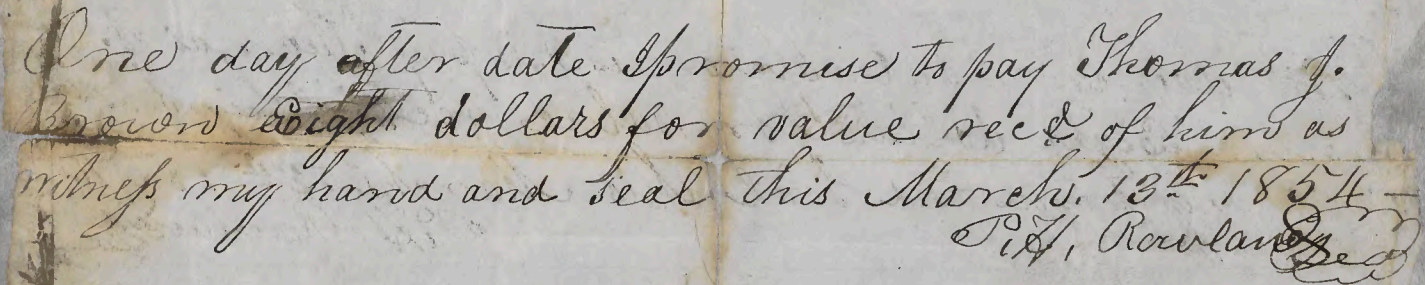 One day after date I promise to pay Thomas J.
Brown Eight dollars for value recd of him as
witness my hand and seal this March. 13th 1854 —
P. H. Rowland Seal